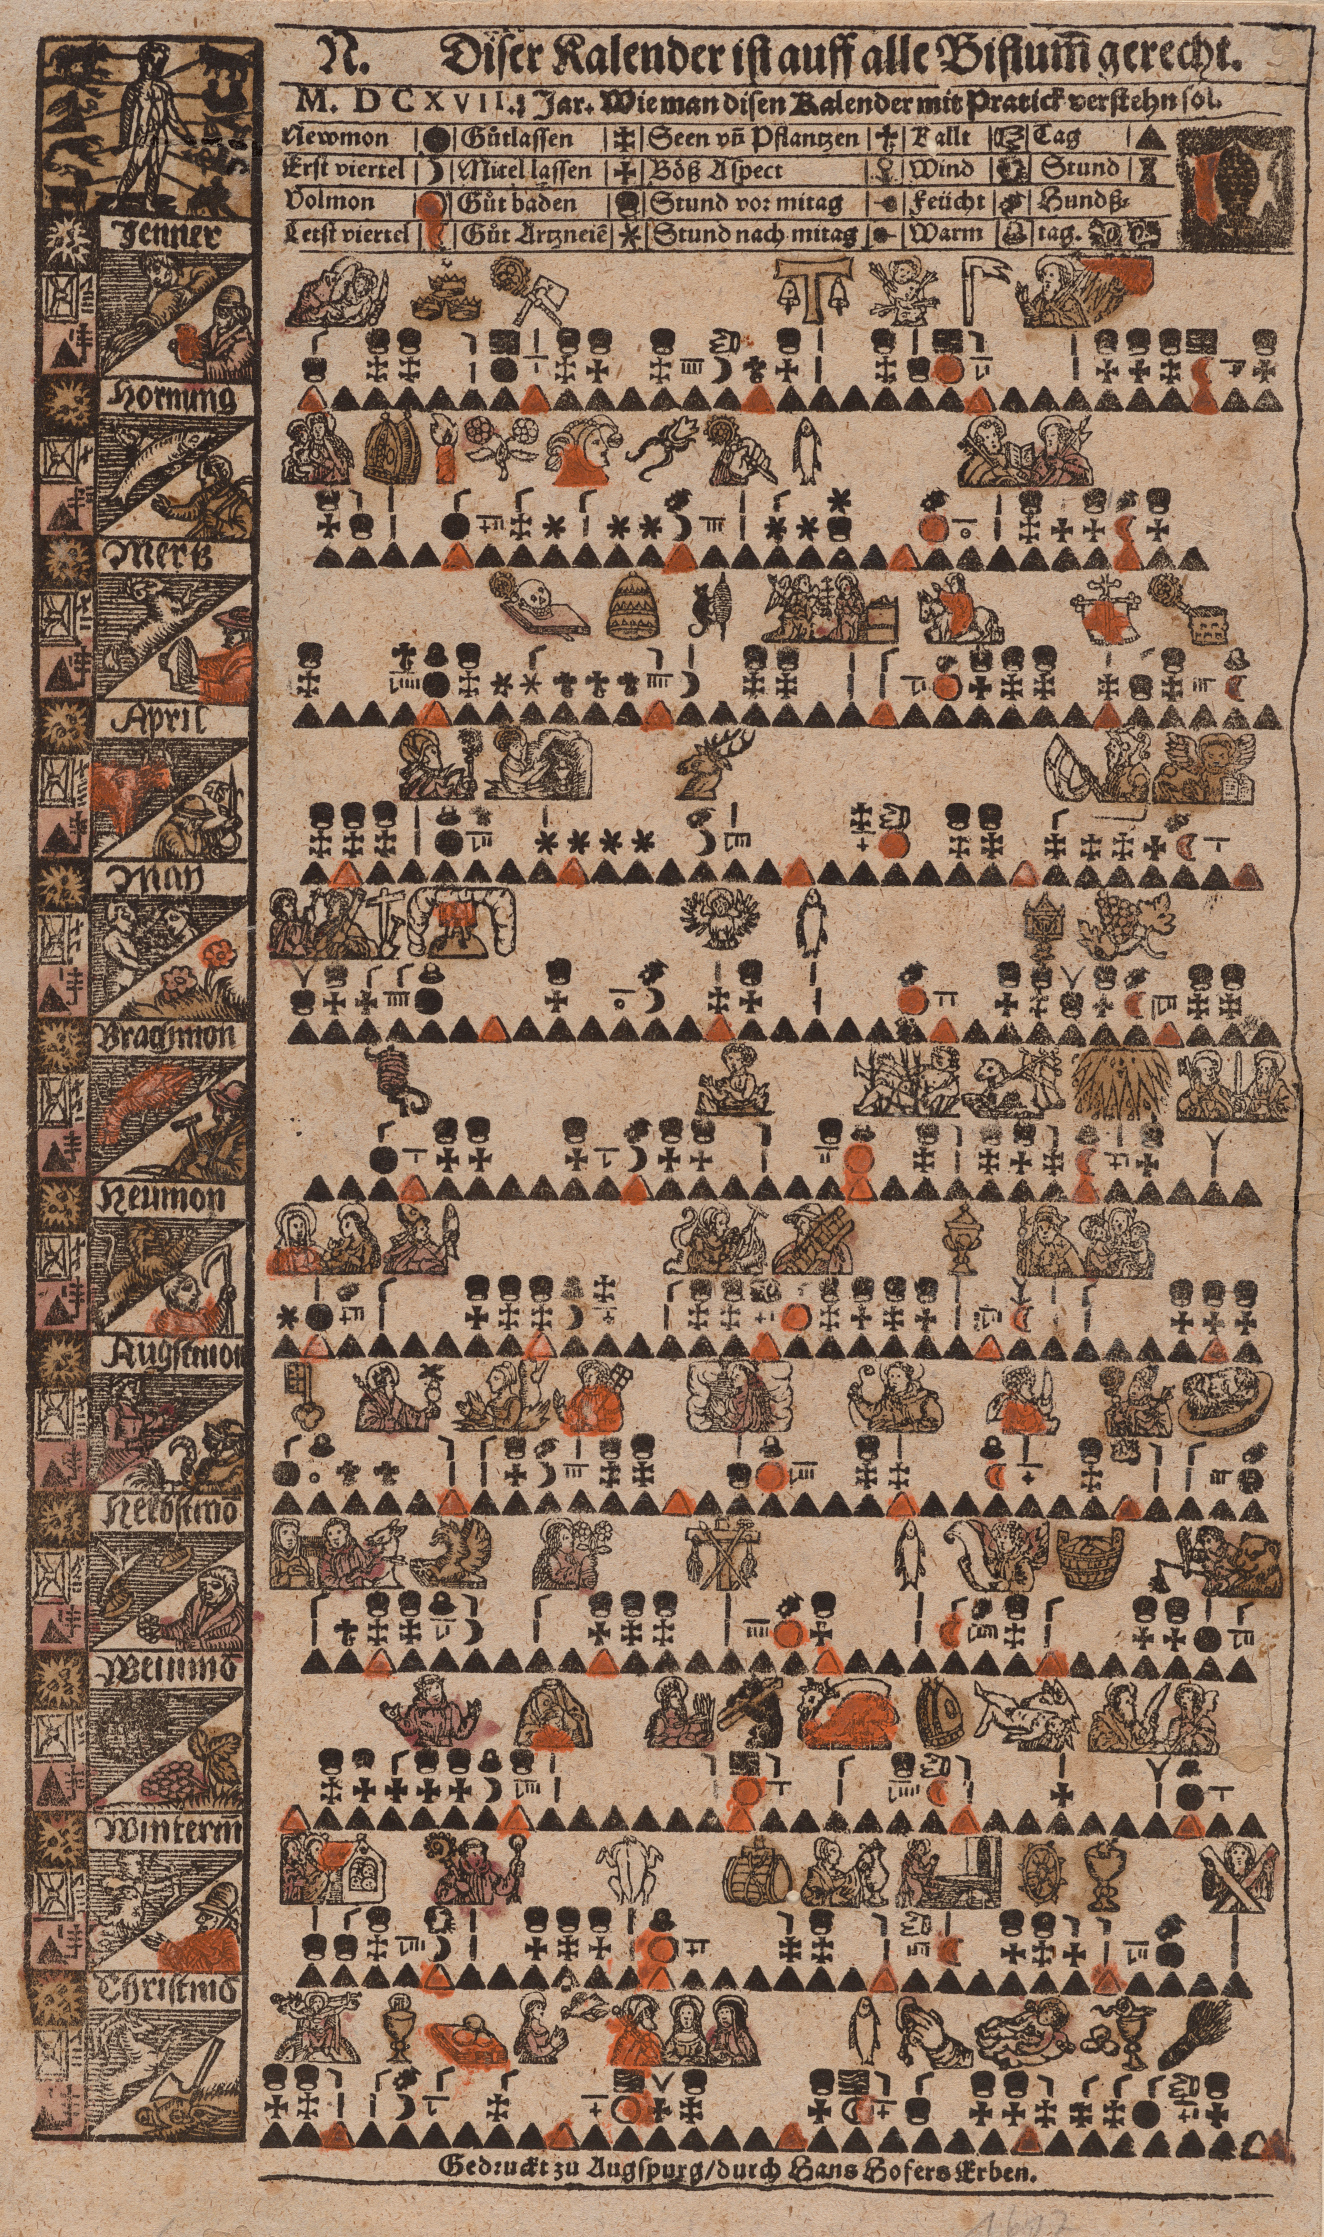 N. Diser Kalender ist auff alle Bistum̃ gerecht.
M. D C X V I I. Jar. Wie man disen Kalender mit Pratick verstehn sol.
Newmon Gůtlassen Seen vñ Pflantzen Kallt Tag
Erst viertel Mitel lassen Böß Aspect Wind Stund
Volmon Gůt baden Stund vor mitag Feücht Hundß-
Letst viertel Gůt Artzneiẽ Stund nach mitag Warm tag.
Jenner
Hornung
Mertz
April
May
Brachmon
Heumon
Augstmon
Herbstmõ
Weinmõ
Winterm̃
Christmõ
Gedruckt zu Augspurg/durch Hans Hofers Erben.
1617